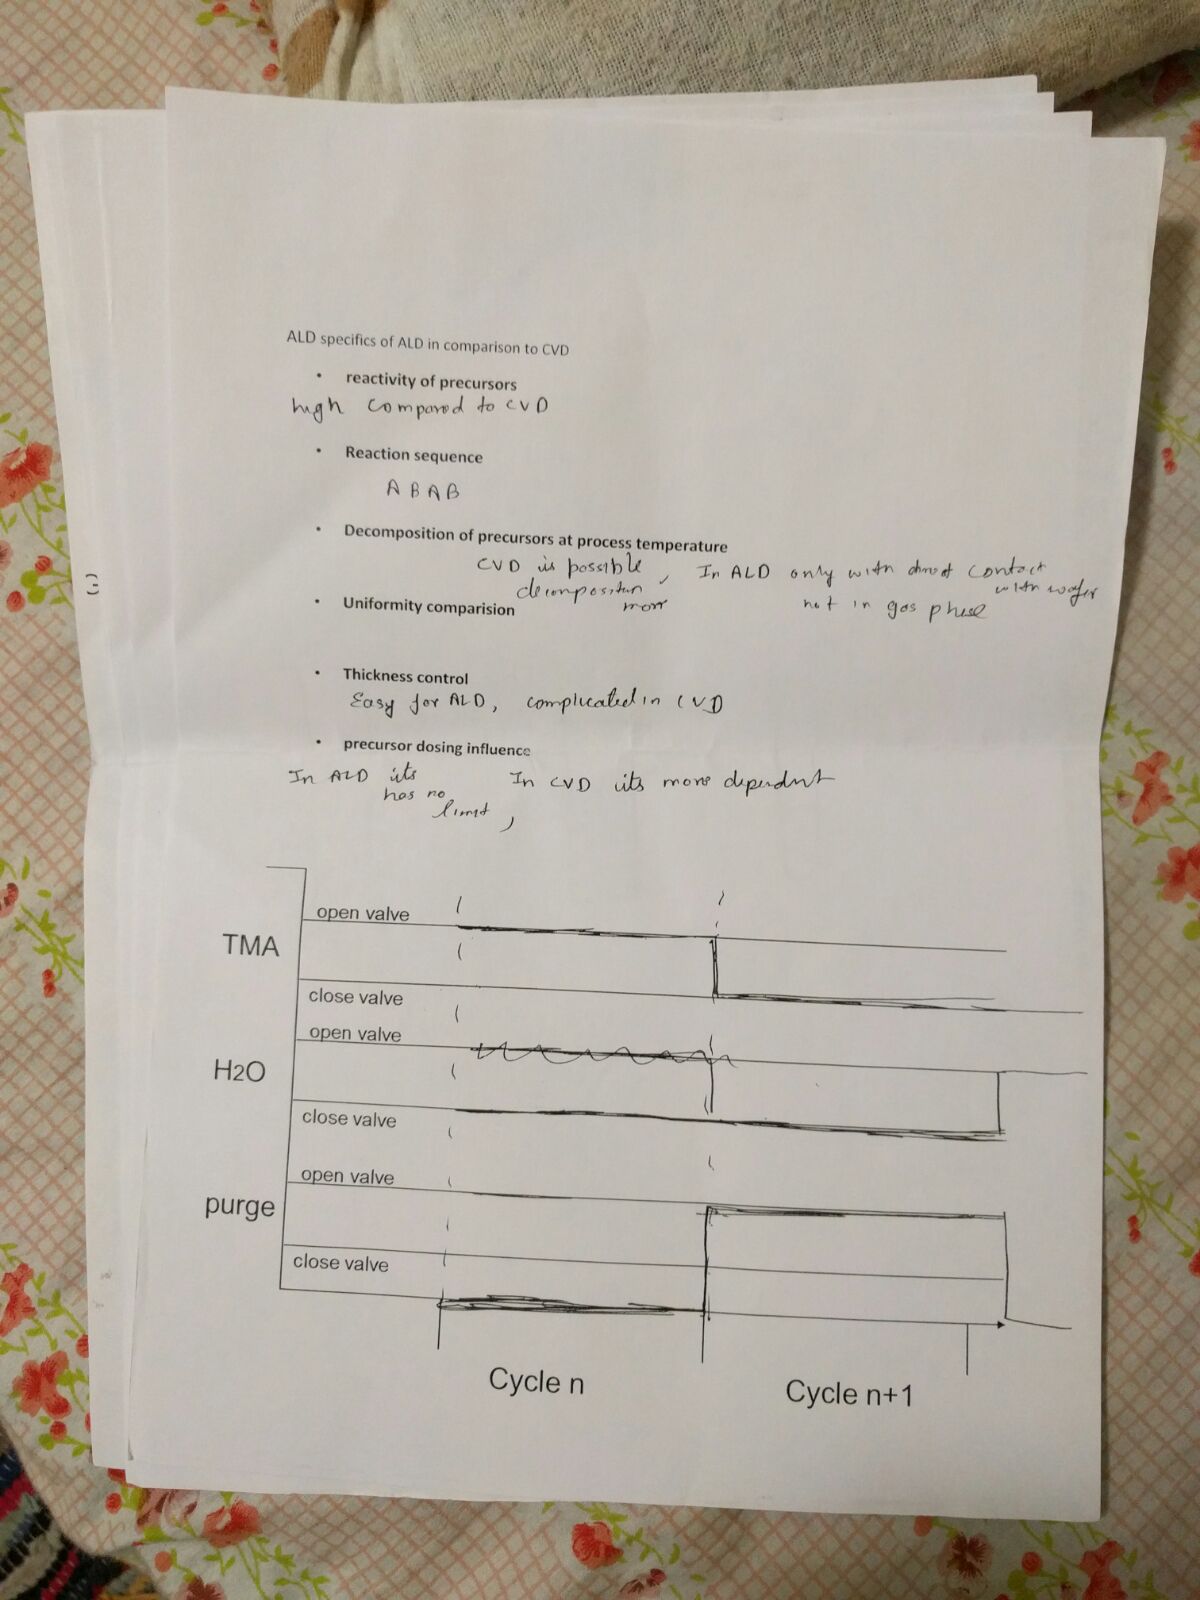 ALD specifics of ALD in comparison to CVD
• reactivity of precursors
high compared to CVD
• Reaction sequence
A B A B
• Decomposition of precursors at process temperature
CVD is possible, In ALD only with direct contact
decomposition with wafer
more not in gas phase
• Uniformity comparision
• Thickness control
Easy for ALD, complicated in CVD
• precursor dosing influence
In ALD its In CVD its more dependent
has no
limit,
open valve
TMA
close valve
open valve
H2O
close valve
open valve
purge
close valve
Cycle n
Cycle n+1